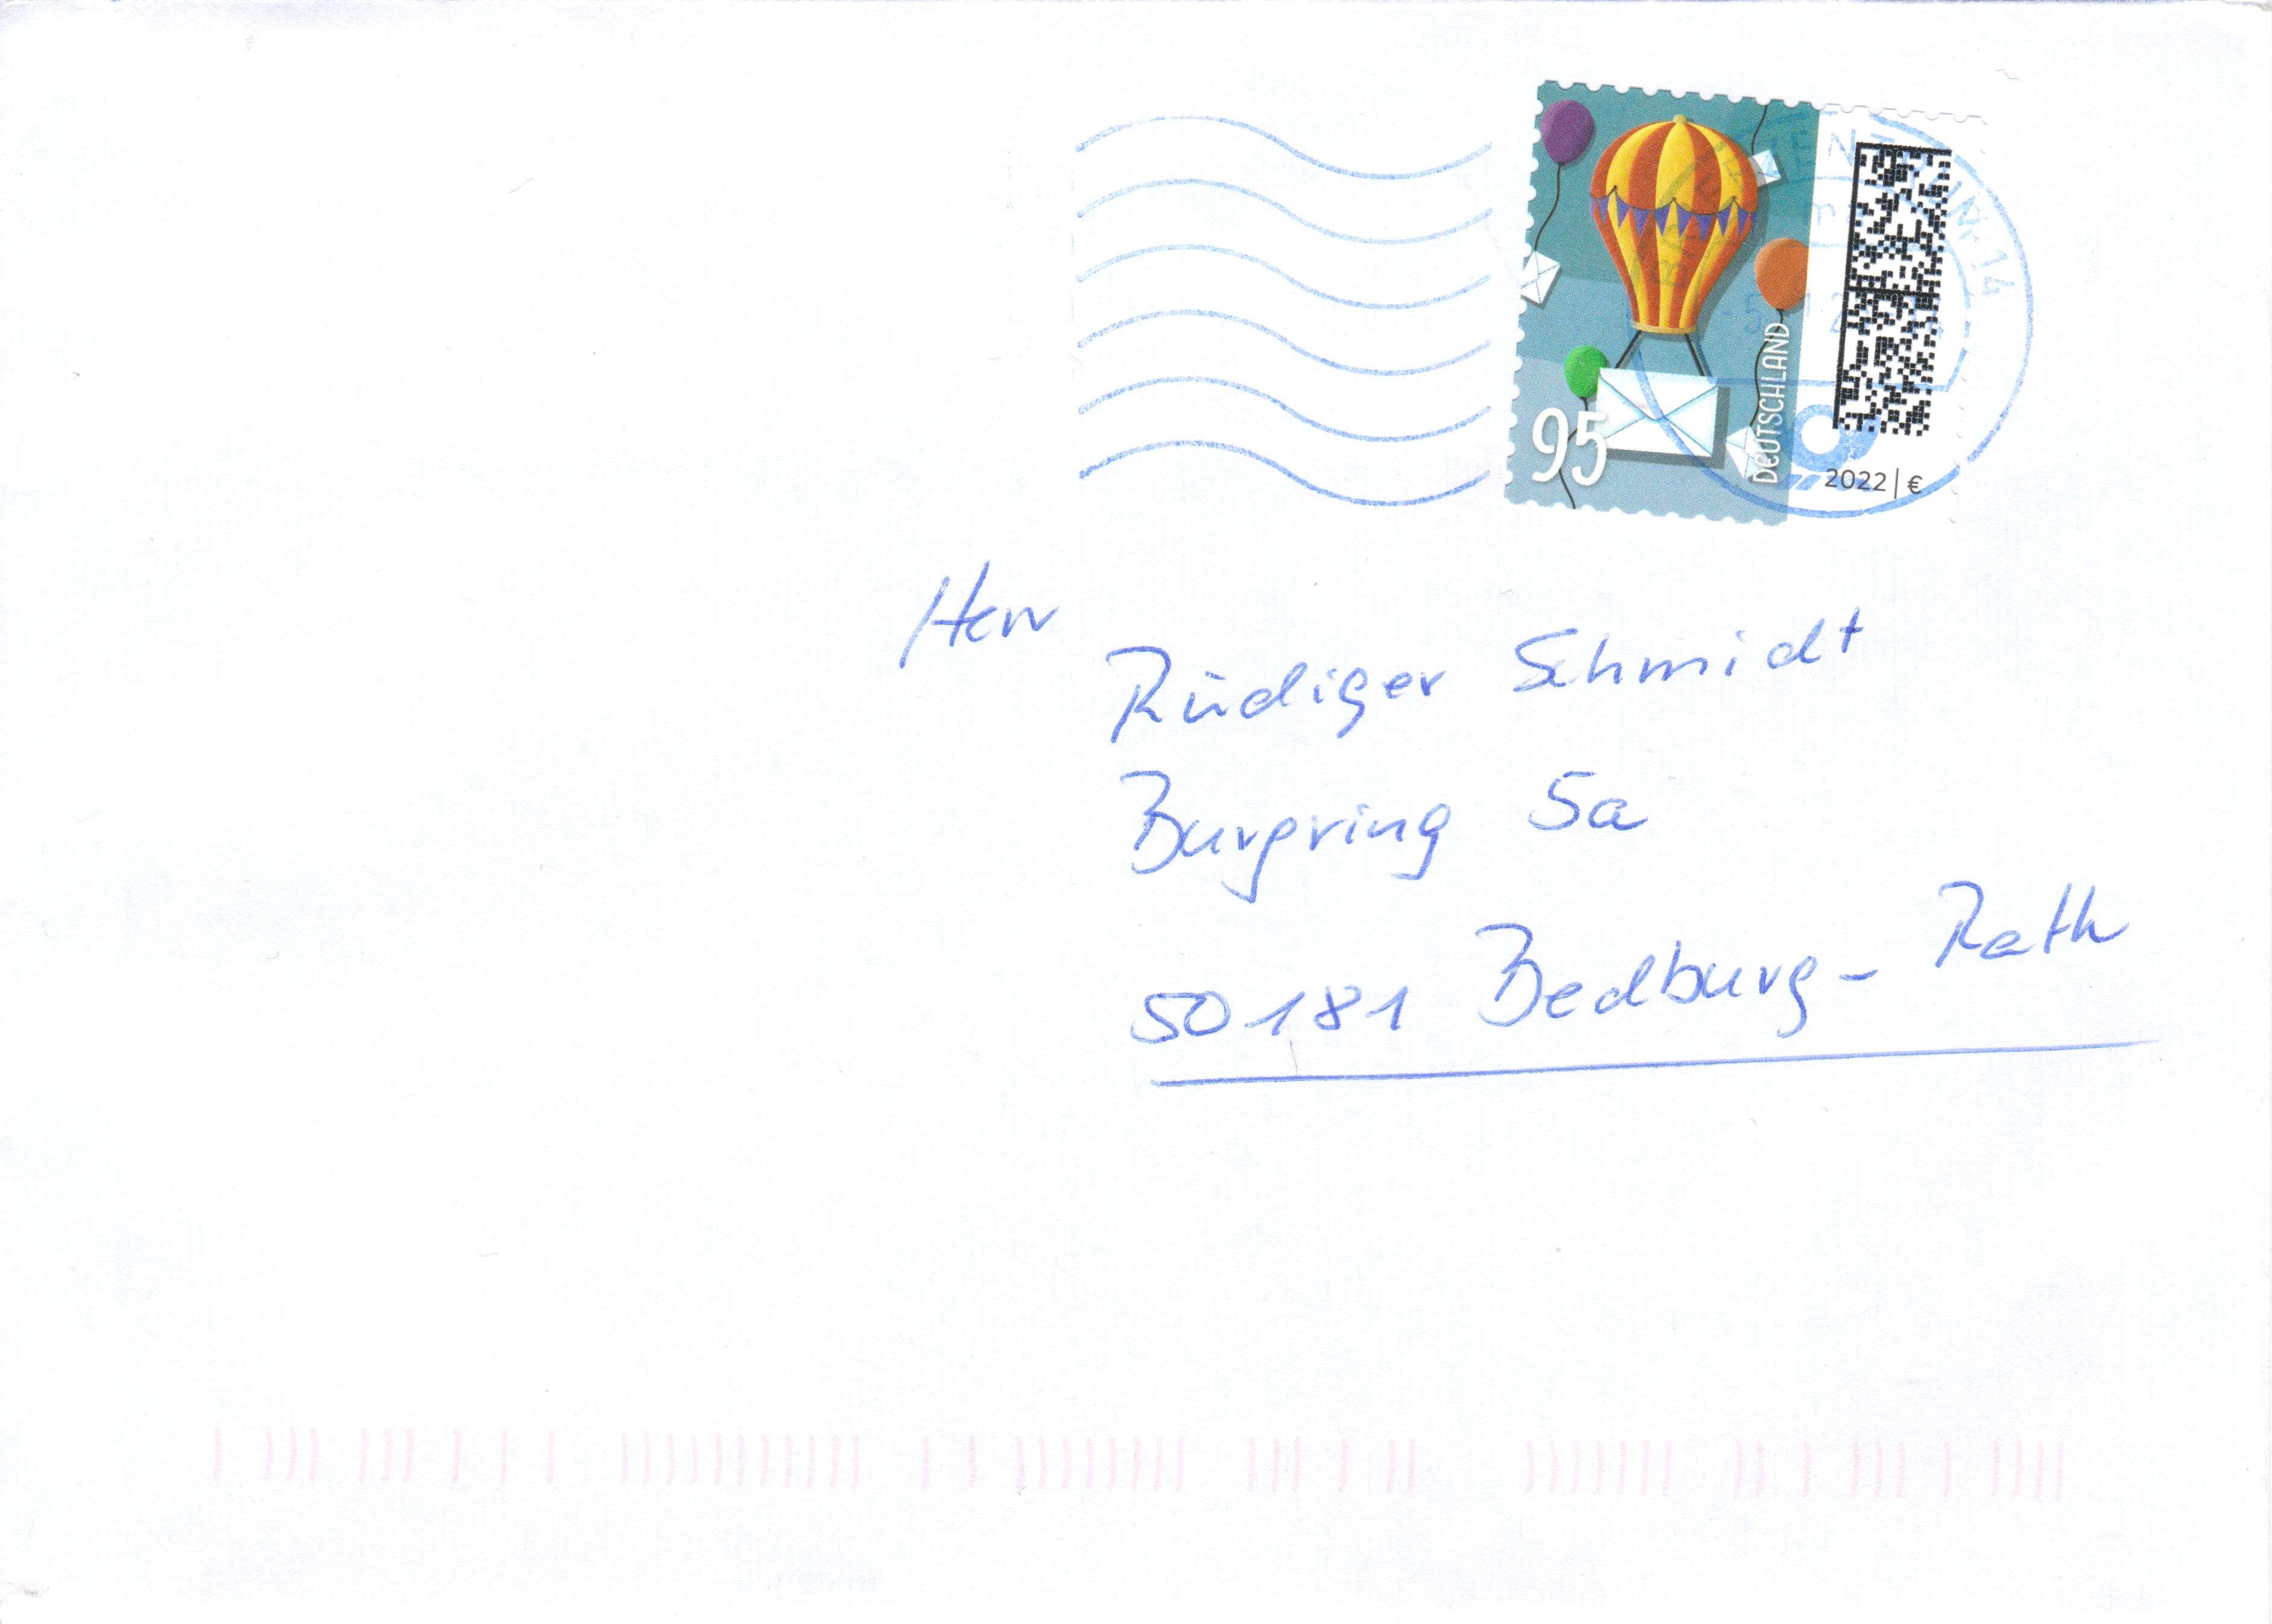 Nr. 14
95
DEUTSCHLAND
2022 | €
Herr
Rüdiger Schmidt
Burgring 5a
50181 Bedburg-Rath